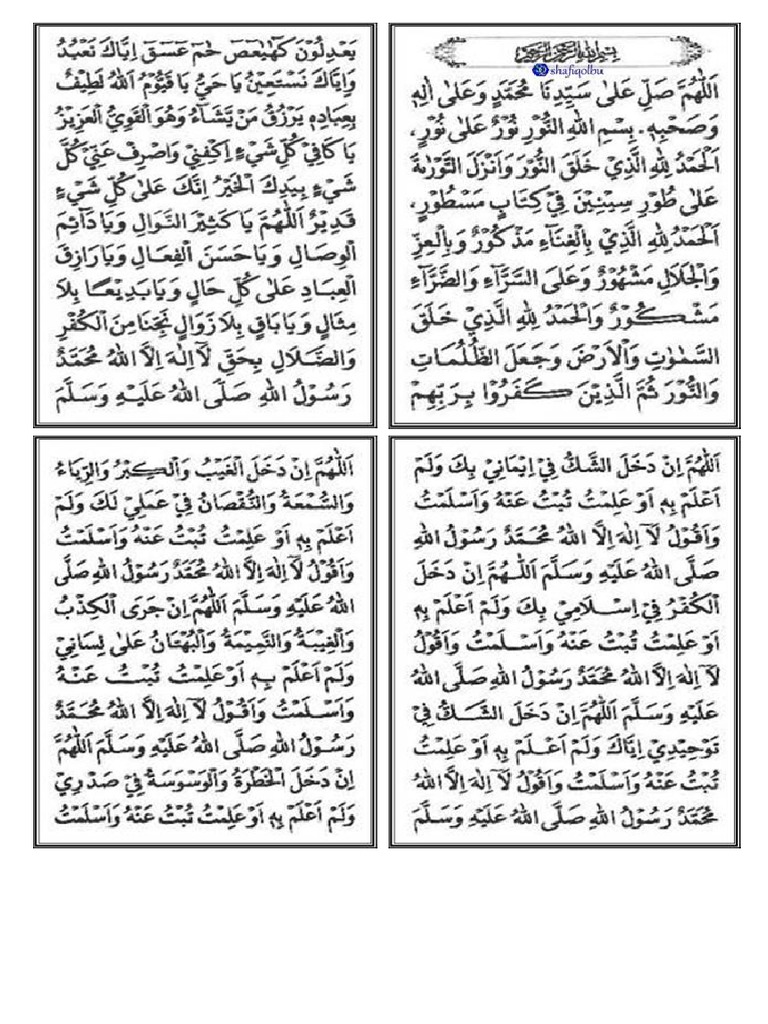 بِسْمِ اللهِ الرَّحْمٰنِ الرَّحِيْمِ
shafiqolbu
اَللّٰهُمَّ صَلِّ عَلٰى سَيِّدِنَا مُحَمَّدٍ وَعَلٰى اٰلِهٖ
وَصَحْبِهٖ. بِسْمِ اللهِ النُّوْرِ نُوْرٌ عَلٰى نُوْرٍ،
اَلْحَمْدُ لِلّٰهِ الَّذِيْ خَلَقَ النُّوْرَ وَاَنْزَلَ التَّوْرٰىةَ
عَلٰى طُوْرِ سِيْنِيْنَ فِيْ كِتَابٍ مَسْطُوْرٍ،
اَلْحَمْدُ لِلّٰهِ الَّذِيْ بِالْغِنَآءِ مَذْكُوْرٌ وَبِالْعِزِّ
وَالْجَلَالِ مَشْهُوْرٌ وَعَلَى السَّرَّآءِ وَالضَّرَّآءِ
مَشْكُوْرٌ وَالْحَمْدُ لِلّٰهِ الَّذِيْ خَلَقَ
السَّمٰوٰتِ وَالْاَرْضَ وَجَعَلَ الظُّلُمَاتِ
وَالنُّوْرَ ثُمَّ الَّذِيْنَ كَفَرُوْا بِرَبِّهِمْ
يَعْدِلُوْنَ كٓهٰيٰعٓصٓ حٰمٓ عٓسٓقٓ اِيَّاكَ نَعْبُدُ
وَاِيَّاكَ نَسْتَعِيْنُ يَا حَيُّ يَا قَيُّوْمُ اَللهُ لَطِيْفٌ
بِعِبَادِهٖ يَرْزُقُ مَنْ يَّشَآءُ وَهُوَ الْقَوِيُّ الْعَزِيْزُ
يَا كَافِيَ كُلِّ شَيْءٍ اِكْفِنِيْ وَاصْرِفْ عَنِّيْ كُلَّ
شَيْءٍ بِيَدِكَ الْخَيْرُ اِنَّكَ عَلٰى كُلِّ شَيْءٍ
قَدِيْرٌ اَللّٰهُمَّ يَا كَثِيْرَ النَّوَالِ وَيَا دَآئِمَ
الْوِصَالِ وَيَا حَسَنَ الْفِعَالِ وَيَا رَازِقَ
الْعِبَادِ عَلٰى كُلِّ حَالٍ وَيَا بَدِيْعًا بِلَا
مِثَالٍ وَيَا بَاقِيْ بِلَا زَوَالٍ نَجِّنَا مِنَ الْكُفْرِ
وَالضَّلَالِ بِحَقِّ لَآ اِلٰهَ اِلَّا اللهُ مُحَمَّدٌ
رَسُوْلُ اللهِ صَلَّى اللهُ عَلَيْهِ وَسَلَّمَ
اَللّٰهُمَّ اِنْ دَخَلَ الشَّكُّ فِيْ اِيْمَانِيْ بِكَ وَلَمْ
اَعْلَمْ بِهٖ اَوْ عَلِمْتُ تُبْتُ عَنْهُ وَاَسْلَمْتُ
وَاَقُوْلُ لَآ اِلٰهَ اِلَّا اللهُ مُحَمَّدٌ رَسُوْلُ اللهِ
صَلَّى اللهُ عَلَيْهِ وَسَلَّمَ اَللّٰهُمَّ اِنْ دَخَلَ
الْكُفْرُ فِيْ اِسْلَامِيْ بِكَ وَلَمْ اَعْلَمْ بِهٖ
اَوْ عَلِمْتُ تُبْتُ عَنْهُ وَاَسْلَمْتُ وَاَقُوْلُ
لَآ اِلٰهَ اِلَّا اللهُ مُحَمَّدٌ رَسُوْلُ اللهِ صَلَّى اللهُ
عَلَيْهِ وَسَلَّمَ اَللّٰهُمَّ اِنْ دَخَلَ الشَّكُّ فِيْ
تَوْحِيْدِيْ اِيَّاكَ وَلَمْ اَعْلَمْ بِهٖ اَوْ عَلِمْتُ
تُبْتُ عَنْهُ وَاَسْلَمْتُ وَاَقُوْلُ لَآ اِلٰهَ اِلَّا اللهُ
مُحَمَّدٌ رَسُوْلُ اللهِ صَلَّى اللهُ عَلَيْهِ وَسَلَّمَ
اَللّٰهُمَّ اِنْ دَخَلَ الْعُجْبُ وَالْكِبْرُ وَالرِّيَاءُ
وَالسُّمْعَةُ وَالنُّقْصَانُ فِيْ عَمَلِيْ لَكَ وَلَمْ
اَعْلَمْ بِهٖ اَوْ عَلِمْتُ تُبْتُ عَنْهُ وَاَسْلَمْتُ
وَاَقُوْلُ لَآ اِلٰهَ اِلَّا اللهُ مُحَمَّدٌ رَسُوْلُ اللهِ صَلَّى
اللهُ عَلَيْهِ وَسَلَّمَ اَللّٰهُمَّ اِنْ جَرَى الْكِذْبُ
وَالْغِيْبَةُ وَالنَّمِيْمَةُ وَالْبُهْتَانُ عَلٰى لِسَانِيْ
وَلَمْ اَعْلَمْ بِهٖ اَوْ عَلِمْتُ تُبْتُ عَنْهُ
وَاَسْلَمْتُ وَاَقُوْلُ لَآ اِلٰهَ اِلَّا اللهُ مُحَمَّدٌ
رَسُوْلُ اللهِ صَلَّى اللهُ عَلَيْهِ وَسَلَّمَ اَللّٰهُمَّ
اِنْ دَخَلَ الْخَطْرَةُ وَالْوَسْوَسَةُ فِيْ صَدْرِيْ
وَلَمْ اَعْلَمْ بِهٖ اَوْ عَلِمْتُ تُبْتُ عَنْهُ وَاَسْلَمْتُ